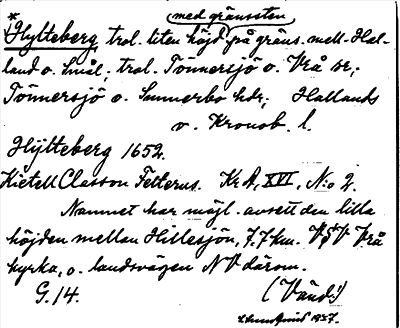 med gränssten
*Hylteberg, trol. liten höjd på gräns. mell. Hal-
land o. Smål., trol. Tönnersjö o. Vrå sr;
Tönnersjö o. Sunnerbo hdr; Hallands
o. Kronob. l.
Hÿlteberg 1652.
Kietell Classon Felterus. KrA, XVI, N:o 2.
Namnet har möjl. avsett den lilla
höjden mellan Hillesjön, 7,7 km. VSV Vrå
kyrka, o. landsvägen NV därom.
G. 14. (Vänd!)
1937.